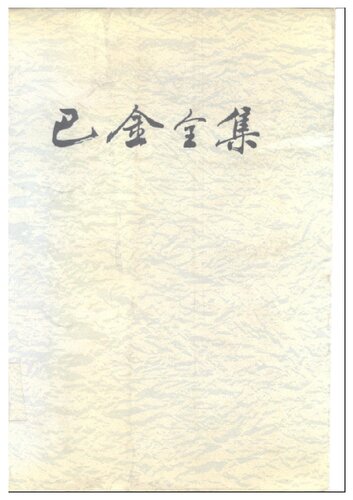 巴金全集